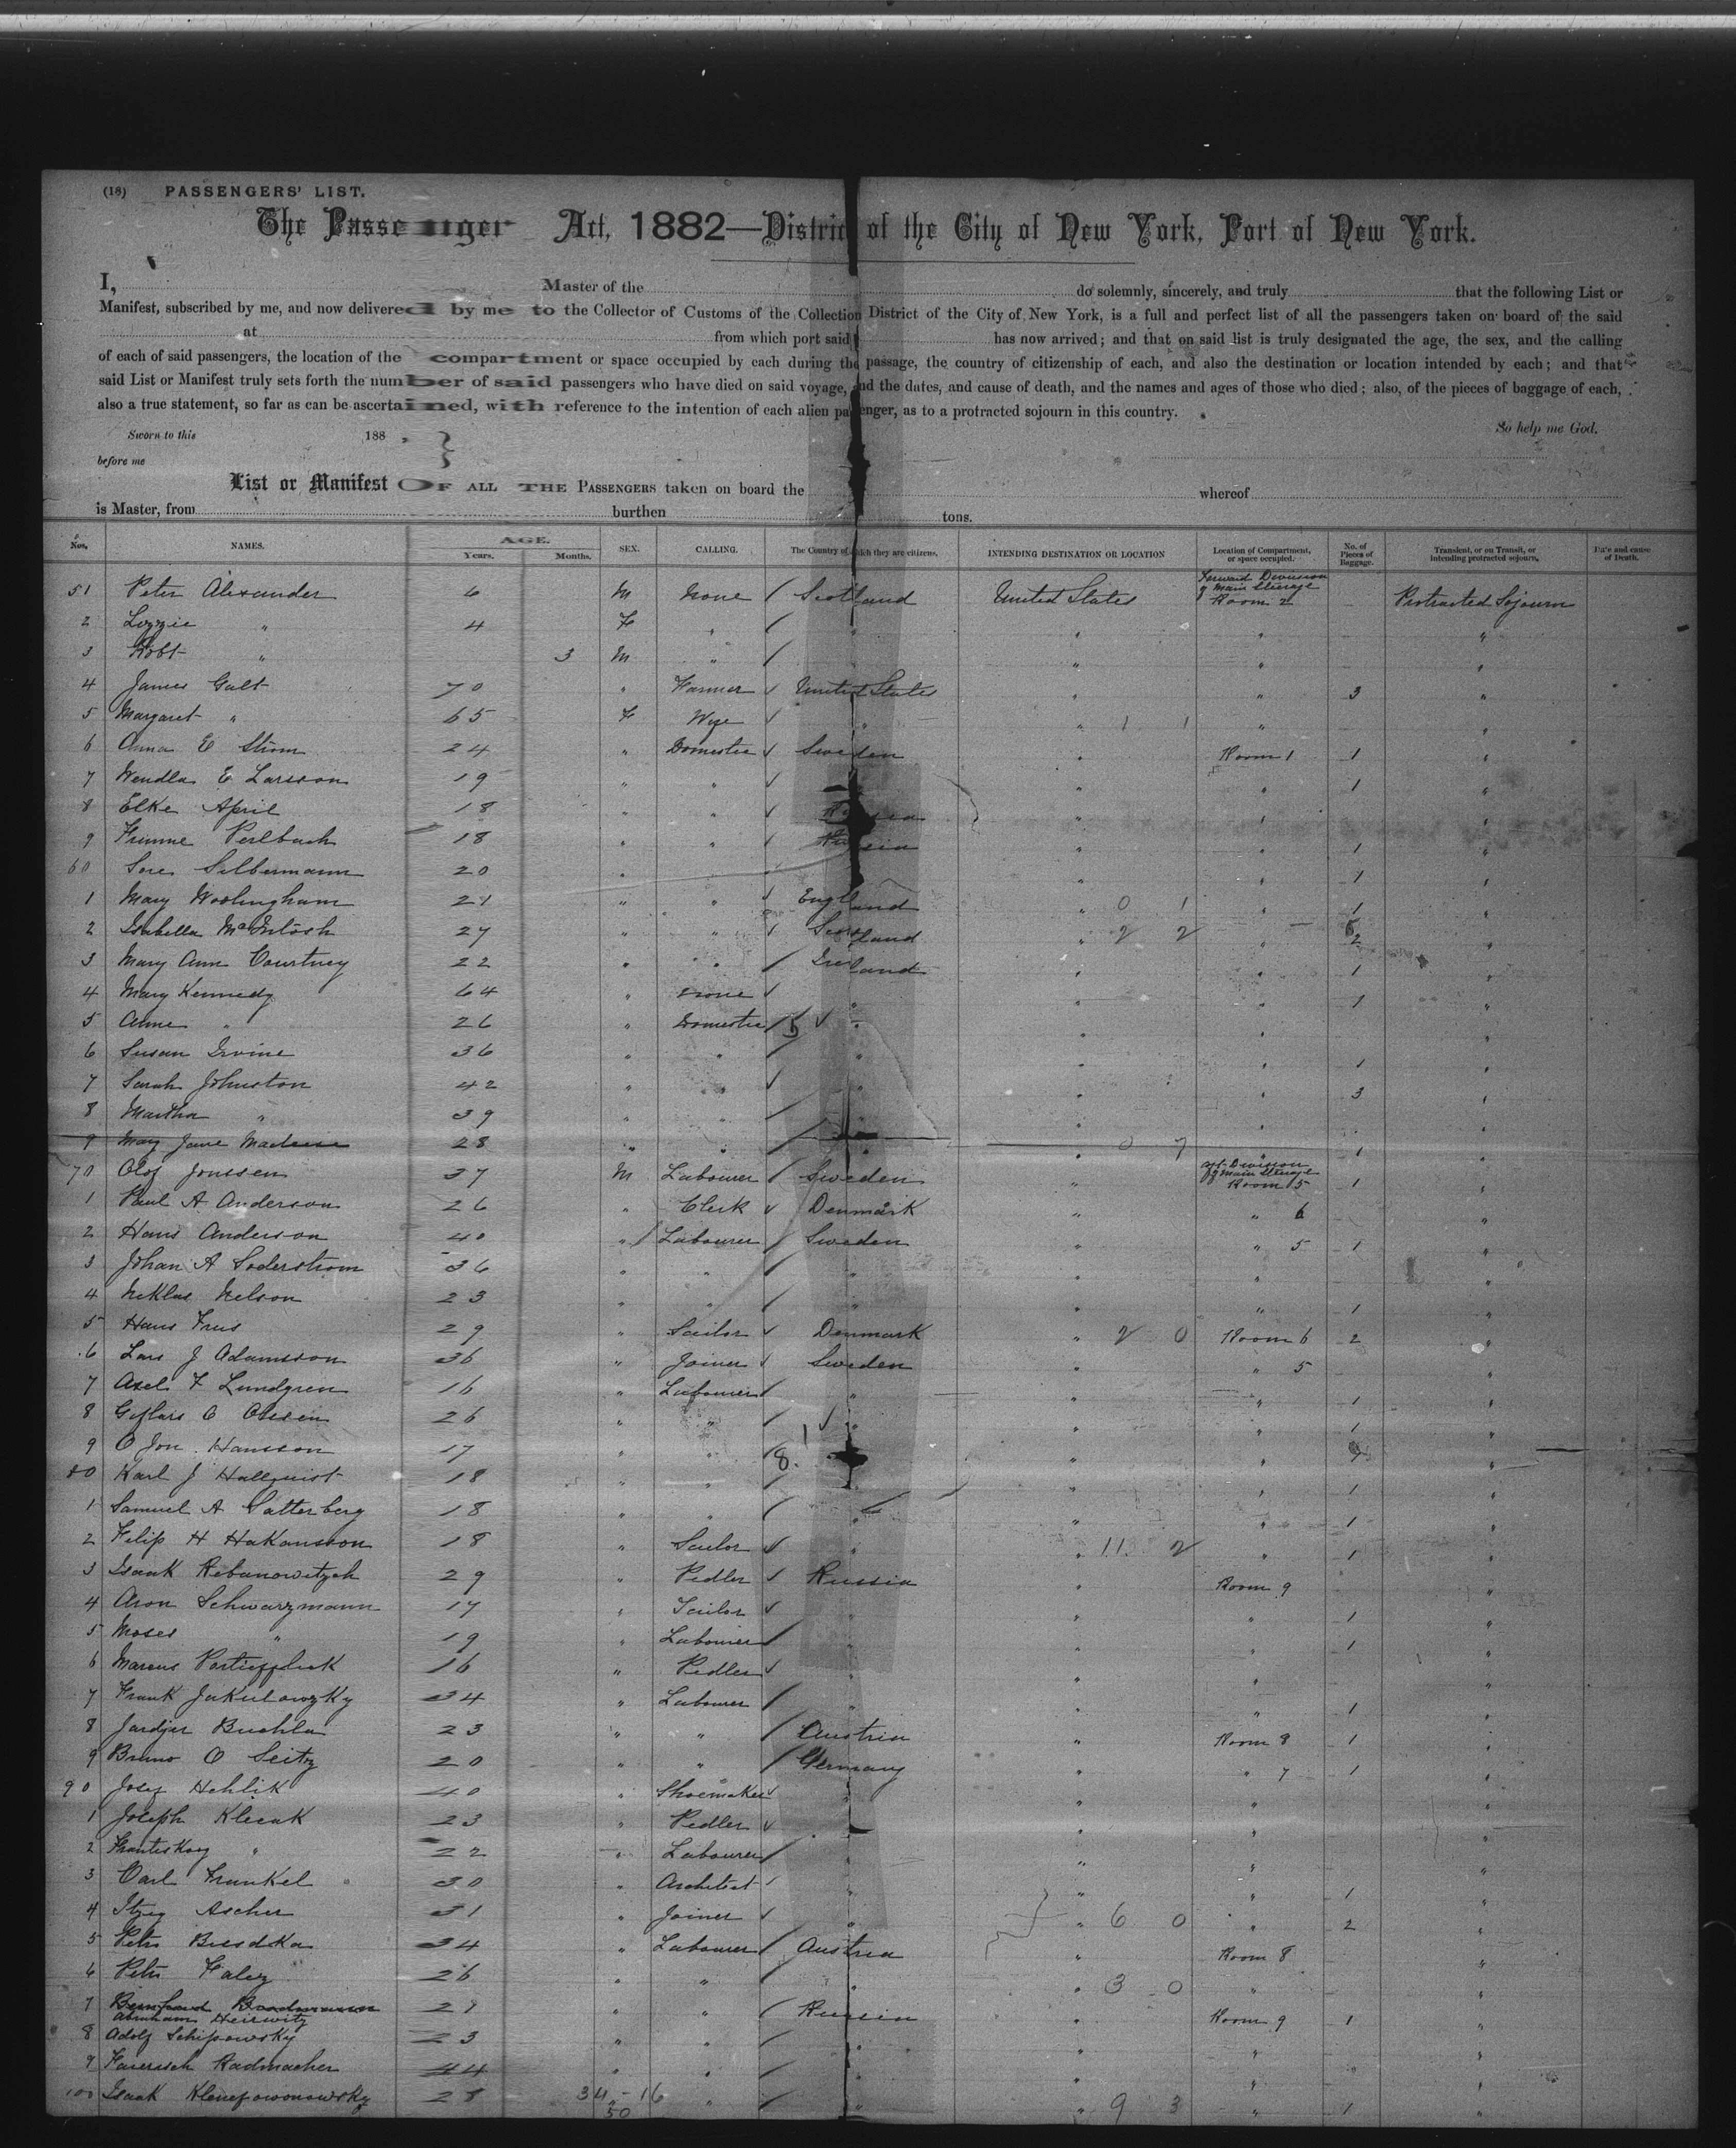 (18) PASSENGERS' LIST.
The Passenger Act, 1882—District of the City of New York, Port of New York.
I, Master of the do solemnly, sincerely, and truly that the following List or
Manifest, subscribed by me, and now delivered by me to the Collector of Customs of the Collection District of the City of New York, is a full and perfect list of all the passengers taken on board of the said
at from which port said has now arrived; and that on said list is truly designated the age, the sex, and the calling
of each of said passengers, the location of the compartment or space occupied by each during the passage, the country of citizenship of each, and also the destination or location intended by each; and that
said List or Manifest truly sets forth the number of said passengers who have died on said voyage, and the dates, and cause of death, and the names and ages of those who died; also, of the pieces of baggage of each,
also a true statement, so far as can be ascertained, with reference to the intention of each alien passenger, as to a protracted sojourn in this country.
Sworn to this 188 , So help me God.
before me
List or Manifest OF ALL THE PASSENGERS taken on board the whereof
is Master, from burthen tons.
Nos. NAMES. AGE. Years. Months. SEX. CALLING. The Country of which they are citizens. INTENDING DESTINATION OR LOCATION Location of Compartment, or space occupied. No. of Pieces of Baggage. Transient, or on Transit, or intending protracted sojourn. Date and cause of Death.
51 Peter Alexander 6 M None / Scotland United States Forward Division of Main Steerage Room 2 Protracted Sojourn
2 Lizzie " 4 F " / " " " "
3 Robt " 3 M " / " " "
4 James Galt 70 " Farmer ✓ United States " " 3 "
5 Margaret " 65 F Wife ✓ " " 1 1 " "
6 Anna E Strom 24 " Domestic ✓ Sweden " Room 1 1 "
7 Wendla E Larsson 19 " " ✓ " " 1 "
8 Elke April 18 " " ✓ Russia " " "
9 Perlbach 18 " " ✓ Russia " " 1 "
60 Sore Silbermann 20 " " " 1 "
1 Mary 21 " " ✓ England " 0 1 " 1 "
2 Isabella McIntosh 27 " " / Scotland " 2 2 " 2 "
3 Mary Ann Courtney 22 " " / Ireland " 1 "
4 Mary Kennedy 64 " None ✓ " " " 1 "
5 Anne " 26 " Domestic / 5 ✓ " " " "
6 Susan Irvine 36 " " / " " " 1 "
7 Sarah Johnston 42 " " ✓ " " 3 "
8 Martha " 39 " " / " " " "
9 Mary Jane 28 " " / " 0 7 " 1 "
70 Olof Jonssen 37 M Labourer / Sweden " aft Division of Main Steerage Room 5 1 "
1 Paul A Anderson 26 " Clerk ✓ Denmark " " 6 "
2 Hans Anderson 40 " / Labourer / Sweden " " 5 1 "
3 Johan A Soderstrom 36 " " / " " " "
4 Niklas Nelson 23 " " / " " " 1 "
5 Hans Frus 29 " Sailor ✓ Denmark " 2 0 Room 6 2 "
6 Lars J Adamsson 36 " Joiner ✓ Sweden " " 5 "
7 Axel F Lundgren 16 " Labourer / " " " 1 "
8 C Olssen 26 " " / ✓ " " " 1 "
9 O Jon. Hansson 17 " " / 8. " " "
80 Karl J Hallquist 18 " " / " " 1 "
1 Samuel A Satterberg 18 " " / " " " 1 "
2 Filip H Hakansson 18 " Sailor ✓ " " 11 2 " 1 "
3 Isaak Rebanowitzch 29 " Pedler ✓ Russia " Room 9 "
4 Aron Schwarzmann 17 " Tailor ✓ " " " 1 "
5 Moses " 19 " Labourer / " " " 1 "
6 Marcus 16 " Pedler ✓ " " " "
7 Frank Jakulowzky 34 " Labourer / " " " 1 "
8 Buchla 23 " " / Austria " Room 8 1 "
9 Bruno O Seitz 20 " " / Germany " " 7 1 "
90 Josef Hehlik 40 " Shoemaker ✓ " " " "
1 Joseph Klecak 23 " Pedler ✓ " " "
2 " 22 " Labourer / " " " "
3 Carl Frankel 30 " Architect / " " " 1 "
4 Itzig Ascher 31 " Joiner ✓ " " 6 0 " 2 "
5 Petro 34 " Labourer / Austria " Room 8 "
6 Petro Falez 26 " " / " " 3 0 " "
7 Abraham Heirwitz 21 " " / Russia " Room 9 1 "
8 Adolf Schipowsky 23 " " / " " " "
9 Radmacher 44 " " / " " " "
100 Isaak 28 34 - 16 " / " " 9 3 " 1 "
50